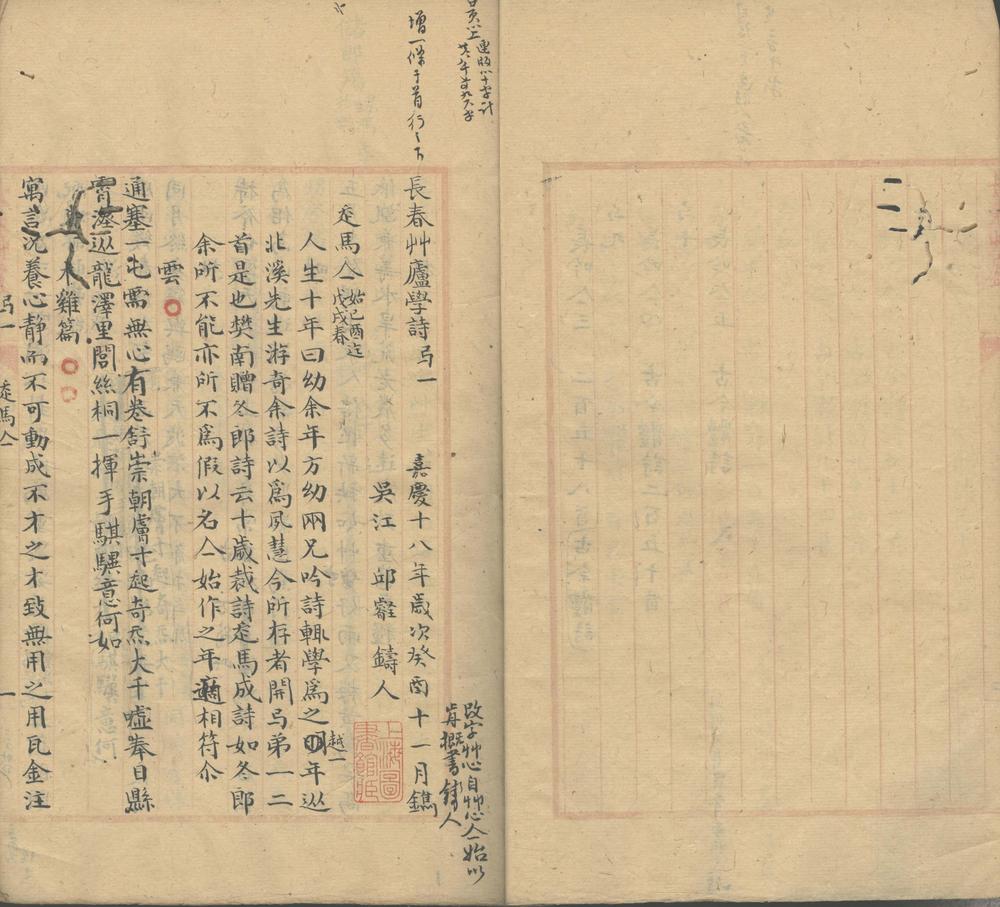 增一條于首行之下
長春艸廬學詩弓一 嘉慶十八年歲次癸酉十一月鐫
吳江 邱靏鑄人
走馬亼 始己酉迄戊戌春
人生十年曰幼余年方幼兩兄吟詩輒學爲之越一年從
北溪先生游奇余詩以爲夙慧今所存者開弓弟一二
首是也樊南贈冬郎詩云十歲裁詩走馬成詩如冬郎
余所不能亦所不爲假以名亼始作之年適相符尒
雲
通塞一屯需無心有卷舒崇朝膚寸起奇烝大千噓奉日縣
霄 從龍澤里閭絲桐一揮手騏驥意何如
木雞篇
寓言況養心靜而不可動成不才之才致無用之用瓦金注
弓一 走馬亼 一
改字艸心自艸心亼始以
肯概書鑄人
上海圖書館藏